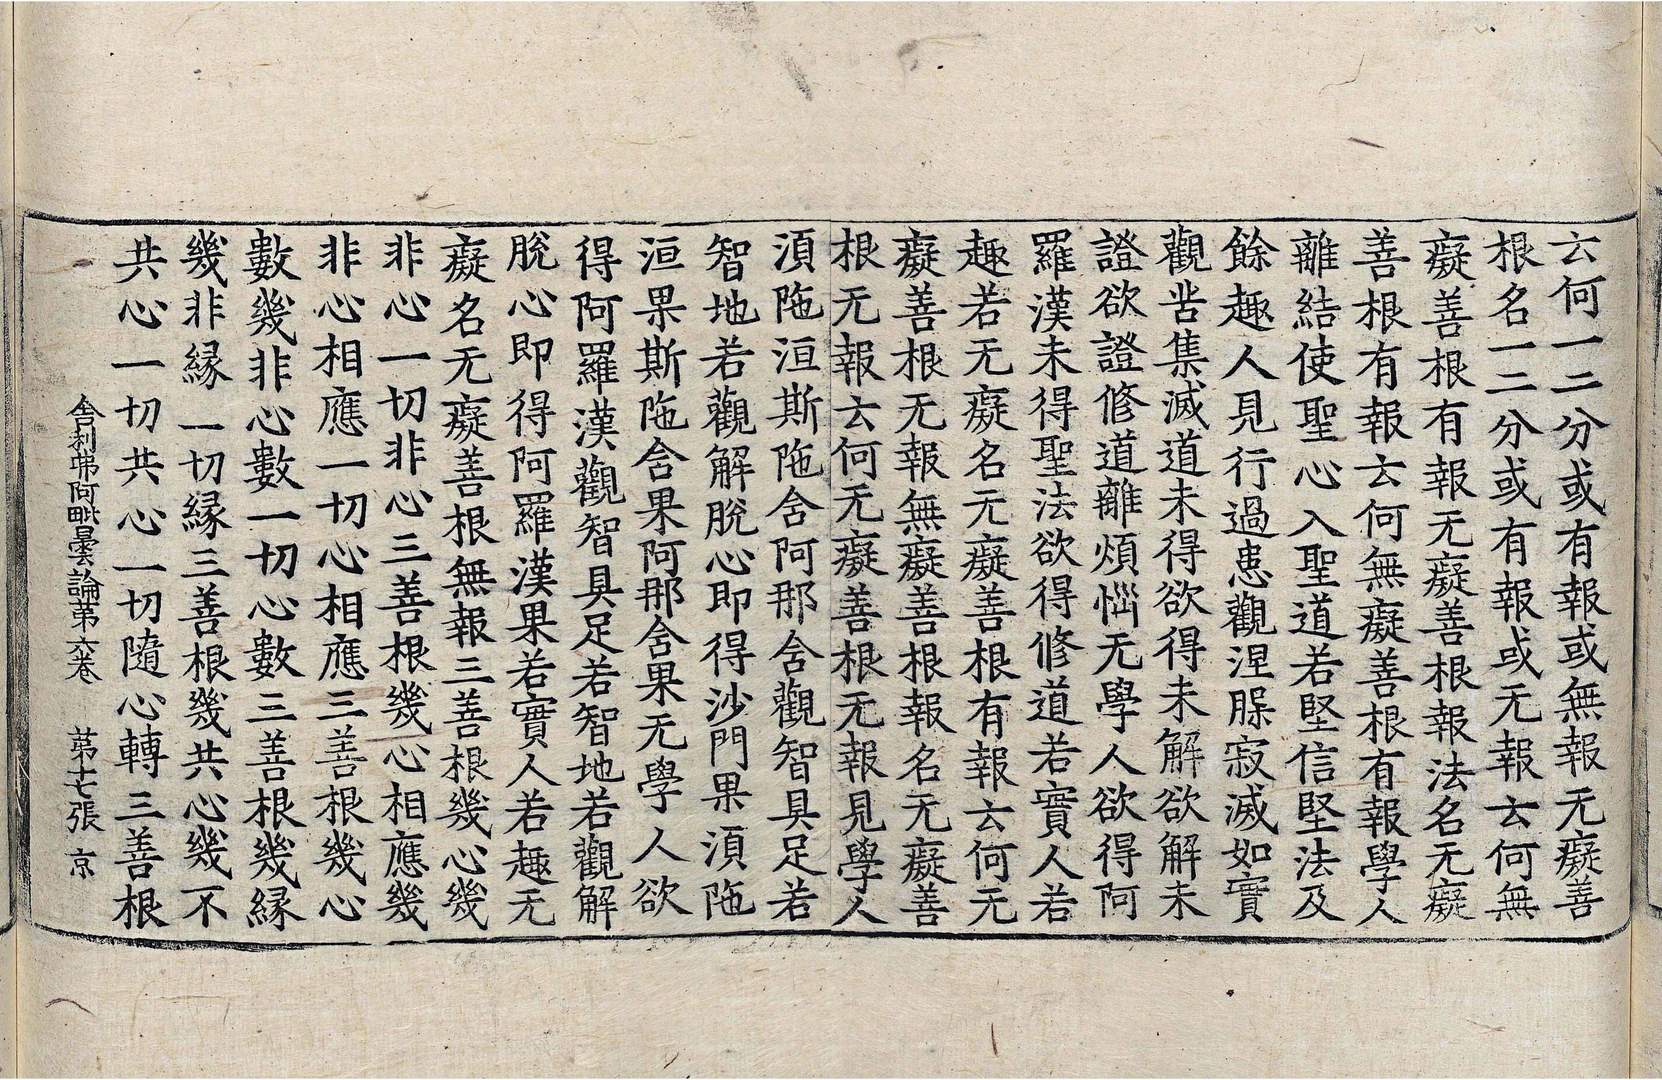 云何一二分或有報或無報无癡善
根名一二分或有報或无報云何無
癡善根有報无癡善根報法名无癡
善根有報云何無癡善根有報學人
離結使聖心入聖道若堅信堅法及
餘趣人見行過患觀涅脲寂滅如實
觀苦集滅道未得欲得未解欲解未
證欲證修道離煩惱无學人欲得阿
羅漢未得聖法欲得修道若實人若
趣若无癡名无癡善根有報云何无
癡善根无報無癡善根報名无癡善
根无報云何无癡善根无報見學人
湏陁洹斯陁含阿那含觀智具足若
智地若觀解脫心即得沙門果湏陁
洹果斯陁含果阿那含果无學人欲
得阿羅漢觀智具足若智地若觀解
脫心即得阿羅漢果若實人若趣无
癡名无癡善根無報三善根幾心幾
非心一切非心三善根幾心相應幾
非心相應一切心相應三善根幾心
數幾非心數一切心數三善根幾緣
幾非緣一切緣三善根幾共心幾不
共心一切共心一切隨心轉三善根
舍利弗阿毗曇論第六卷 第十七張 京